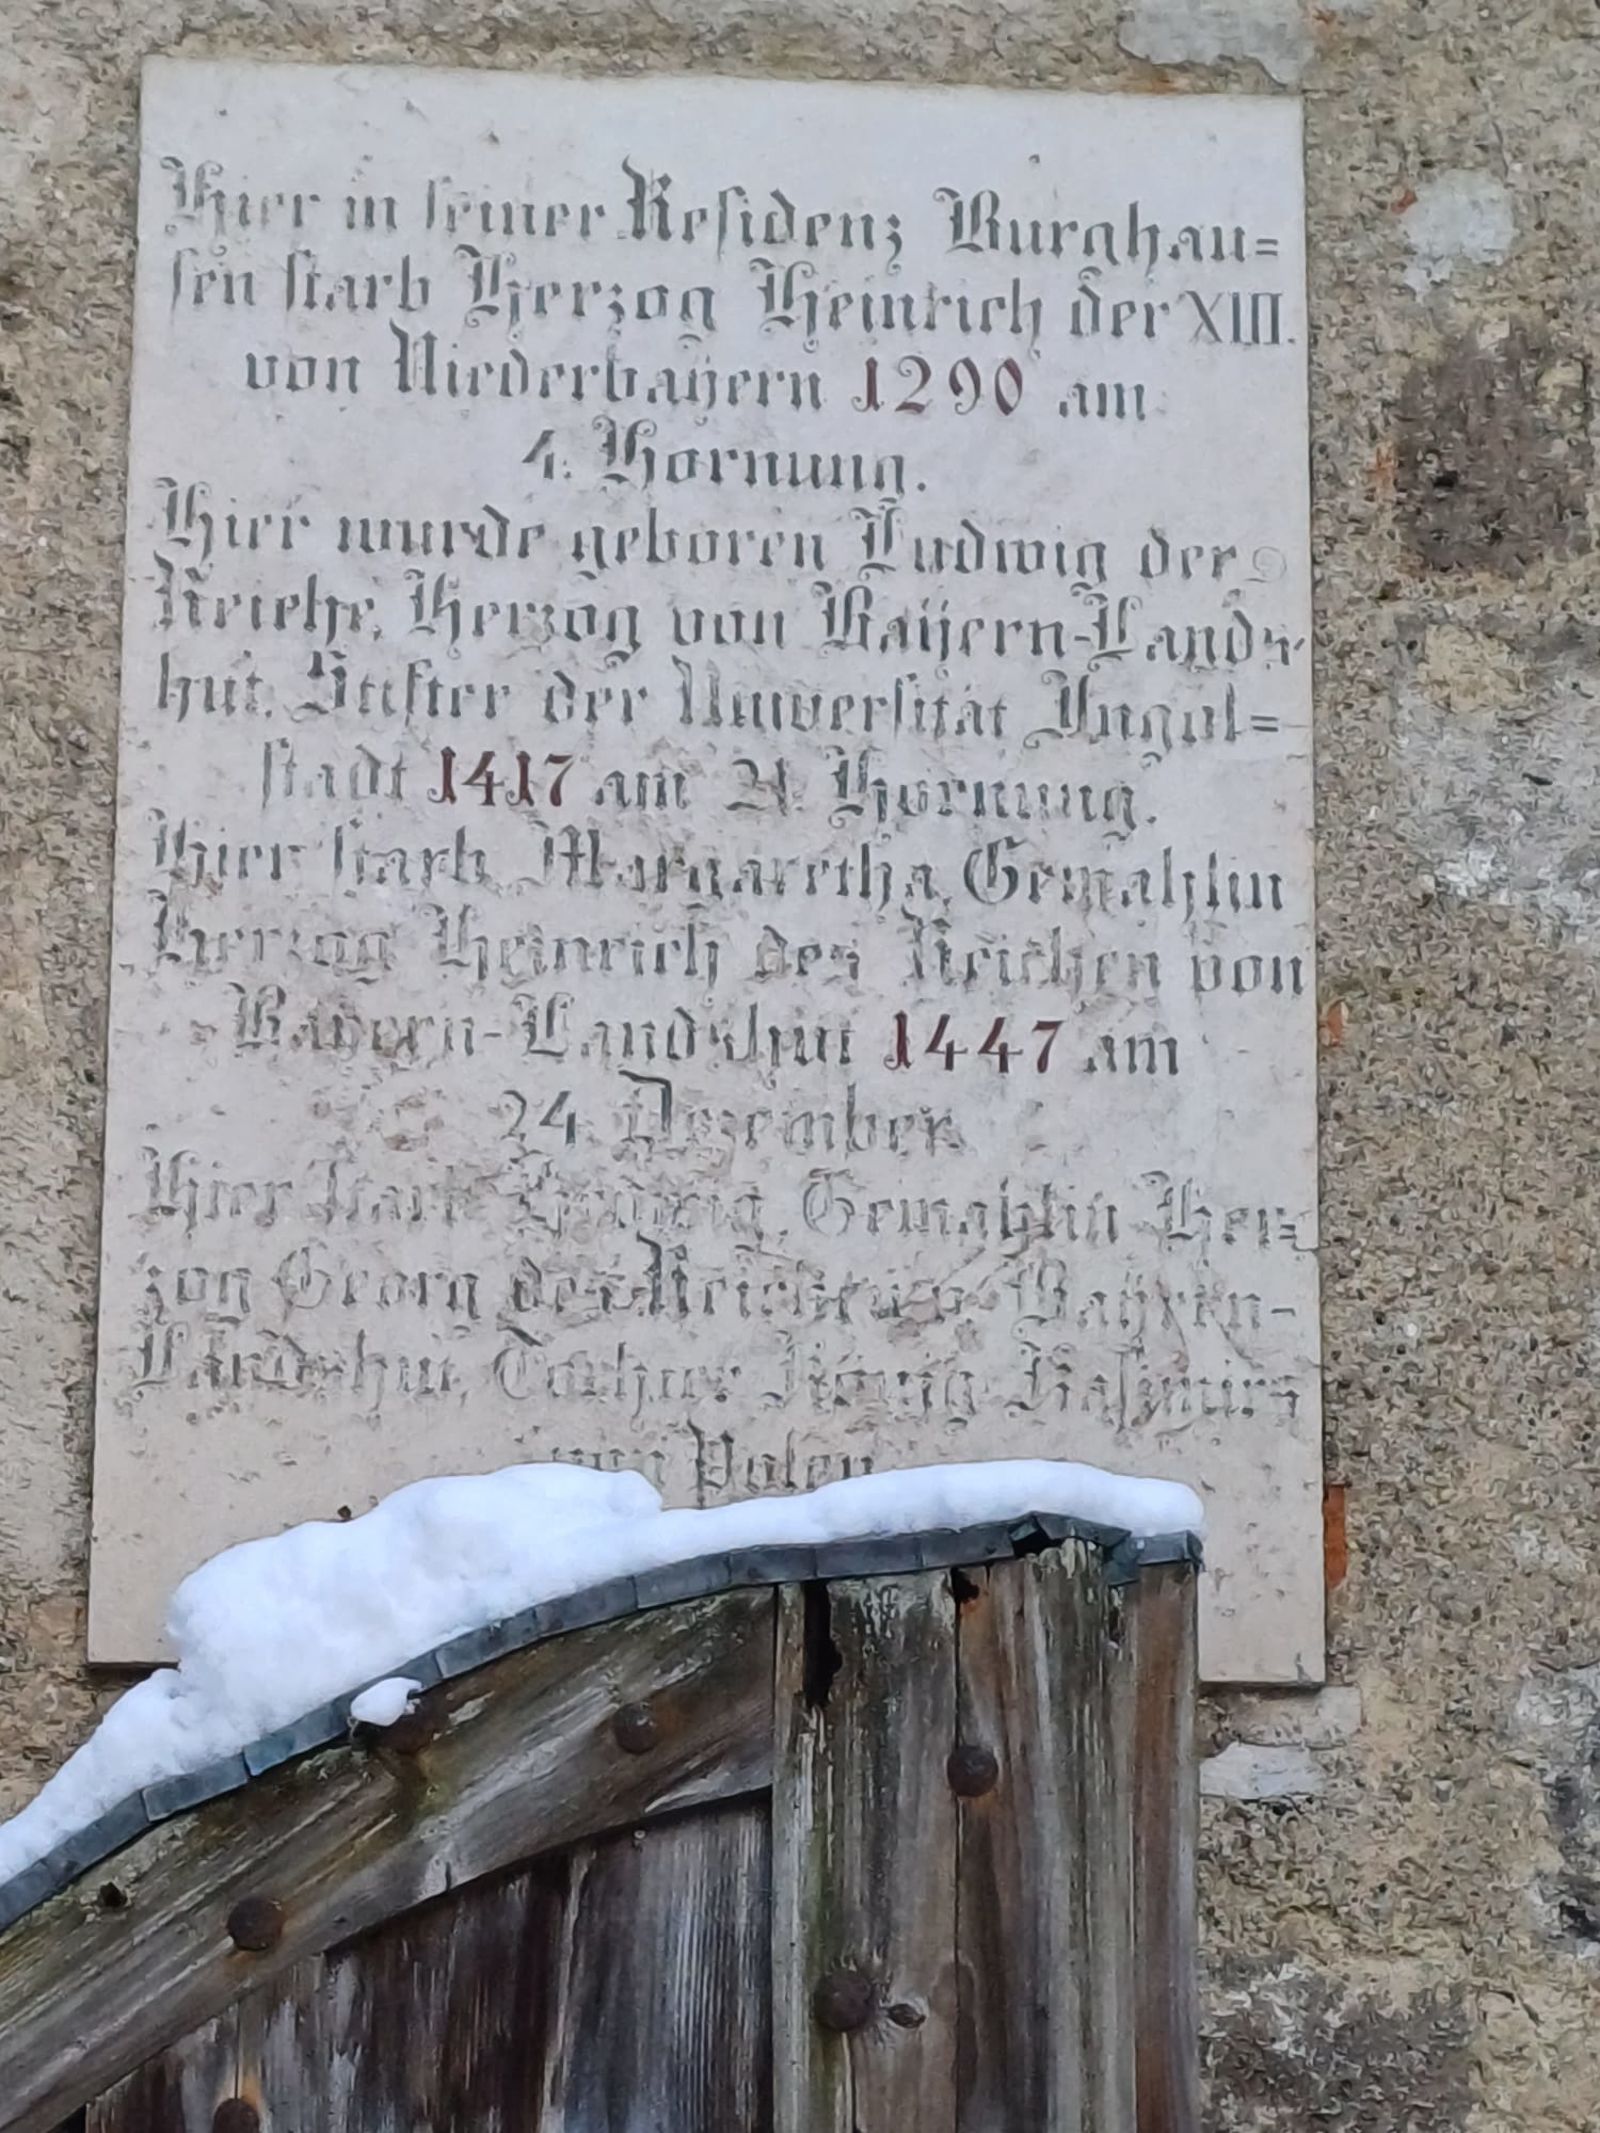 Hier in seiner Residenz Burghau=
sen starb Herzog Heinrich der XIII.
von Niederbayern 1290 am
4. Hornung.
Hier wurde geboren Ludwig der
Reiche, Herzog von Bayern-Lands-
hut, Stifter der Universität Ingol=
stadt 1417 am 21. Hornung.
Hier starb Margaretha, Gemahlin
Herzog Heinrich des Reichen von
Bayern-Landshut 1447 am
24. Dezember.
Hier starb Hedwig, Gemahlin Her=
zog Georg des Reichen v. Bayern-
Landshut, Tochter König Kasimirs
von Polen